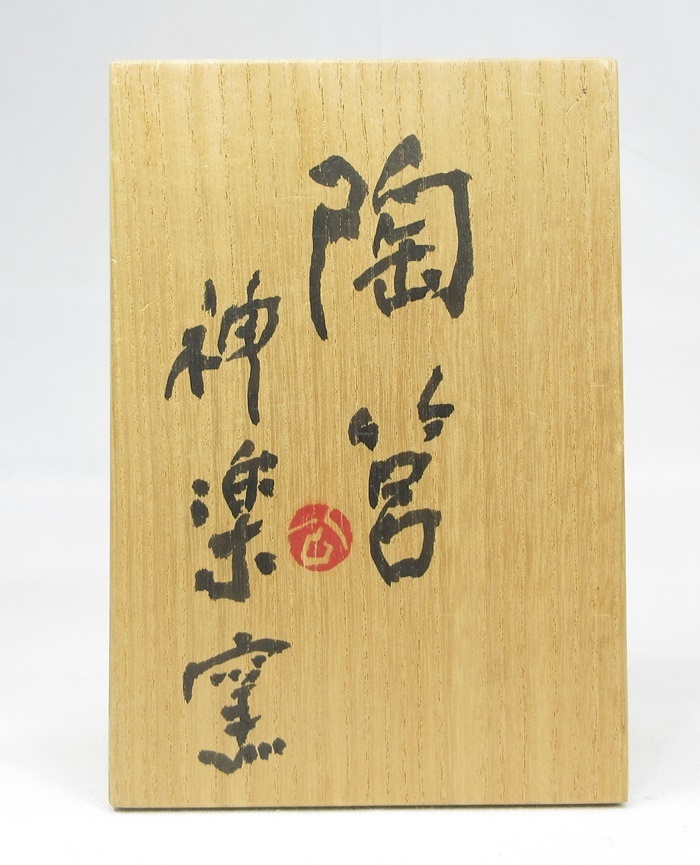 陶筥
神楽窯